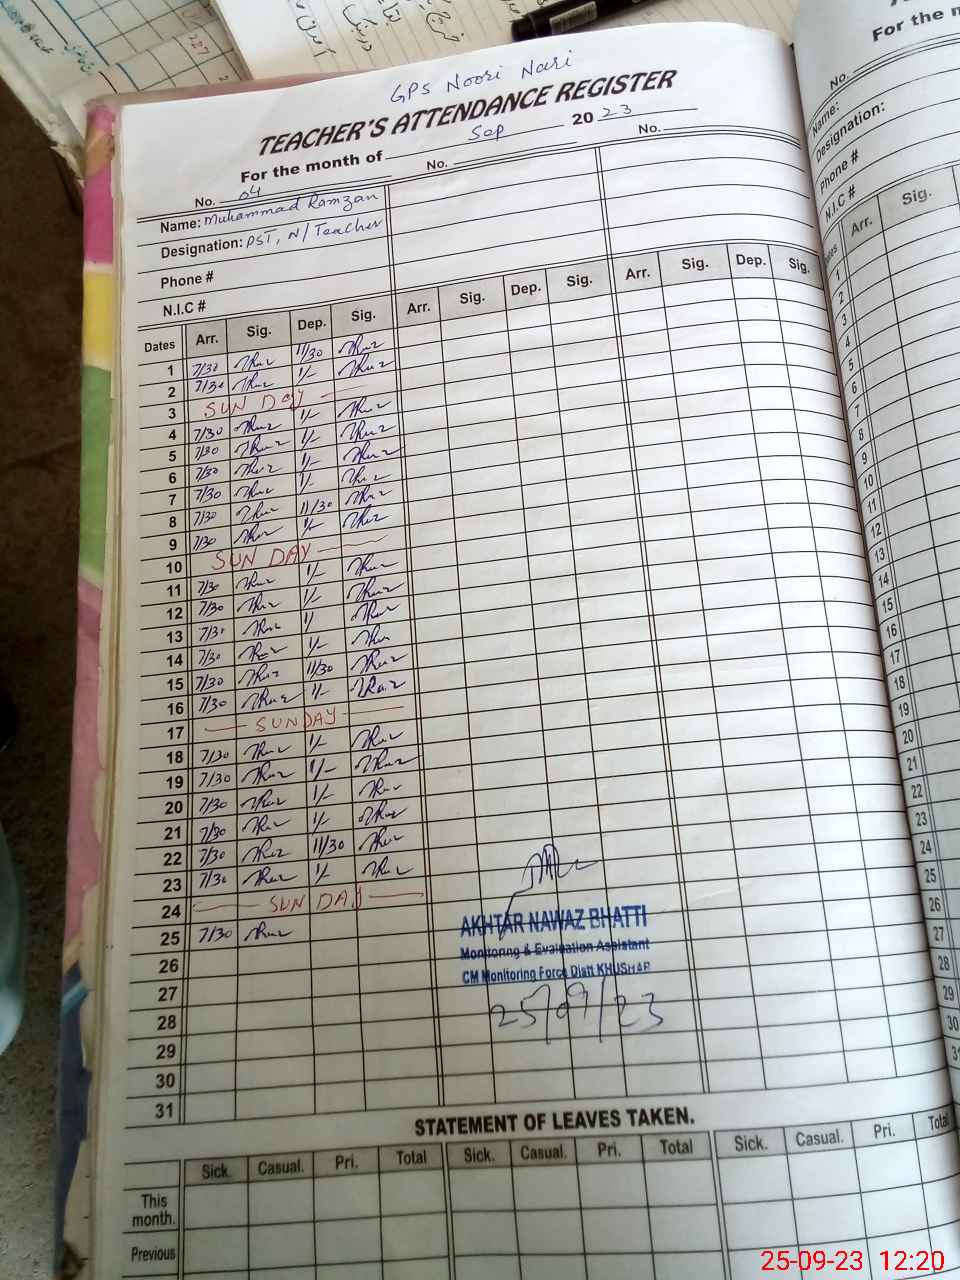 GPS Noori Nari
TEACHER'S ATTENDANCE REGISTER
For the month of Sep 20 23
No. 04 No. No.
Name: Muhammad Ramzan
Designation: PST, N/Teacher
Phone #
N.I.C #
Dates Arr. Sig. Dep. Sig. Arr. Sig. Dep. Sig. Arr. Sig. Dep. Sig.
1 7/30 11/30
2 7/30 1/-
3 SUN DAY
4 7/30 1/-
5 7/30 1/-
6 7/30 1/-
7 7/30 1/-
8 7/30 11/30
9 7/30 1/-
10 SUN DAY
11 7/30 1/-
12 7/30 1/-
13 7/30 1/
14 7/30 1/-
15 7/30 11/30
16 7/30 1/-
17 SUNDAY
18 7/30 1/-
19 7/30 1/-
20 7/30 1/-
21 7/30 1/-
22 7/30 11/30
23 7/30 1/-
24 SUN DAY
25 7/30
26
27
28
29
30
31
AKHTAR NAWAZ BHATTI
Monitoring & Evaluation Assistant
CM Monitoring Force Distt KHUSHAB
25/09/23
STATEMENT OF LEAVES TAKEN.
Sick. Casual. Pri. Total Sick. Casual. Pri. Total Sick. Casual. Pri. Total
This month.
Previous
For the m
No.
Name:
Designation:
Phone #
N.I.C #
Arr. Sig.
1
2
3
4
5
6
7
8
9
10
11
12
13
14
15
16
17
18
19
20
21
22
23
24
25
26
27
28
29
30
31
25-09-23 12:20